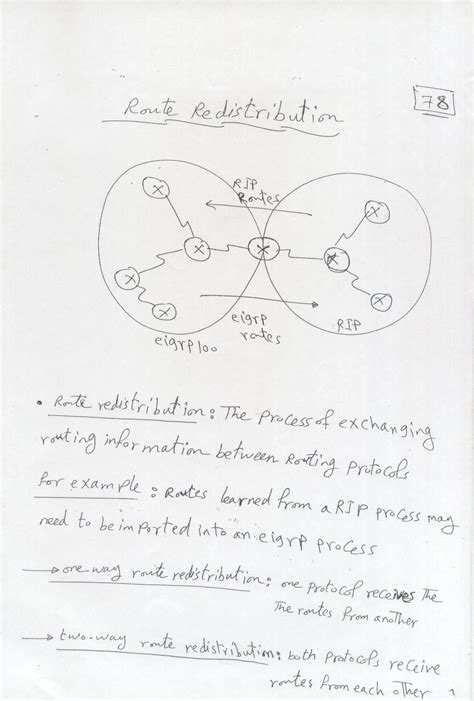 78
Route Redistribution
RIP
Routes
eigrp
routes
eigrp100
RIP
• Route redistribution: The process of exchanging
routing information between Routing Protocols
for example: Routes learned from a RIP process may
need to be imported into an eigrp process
→ one-way route redistribution: one protocol receives The
The routes from another
→ two-way route redistribution: both protocols receive
routes from each other